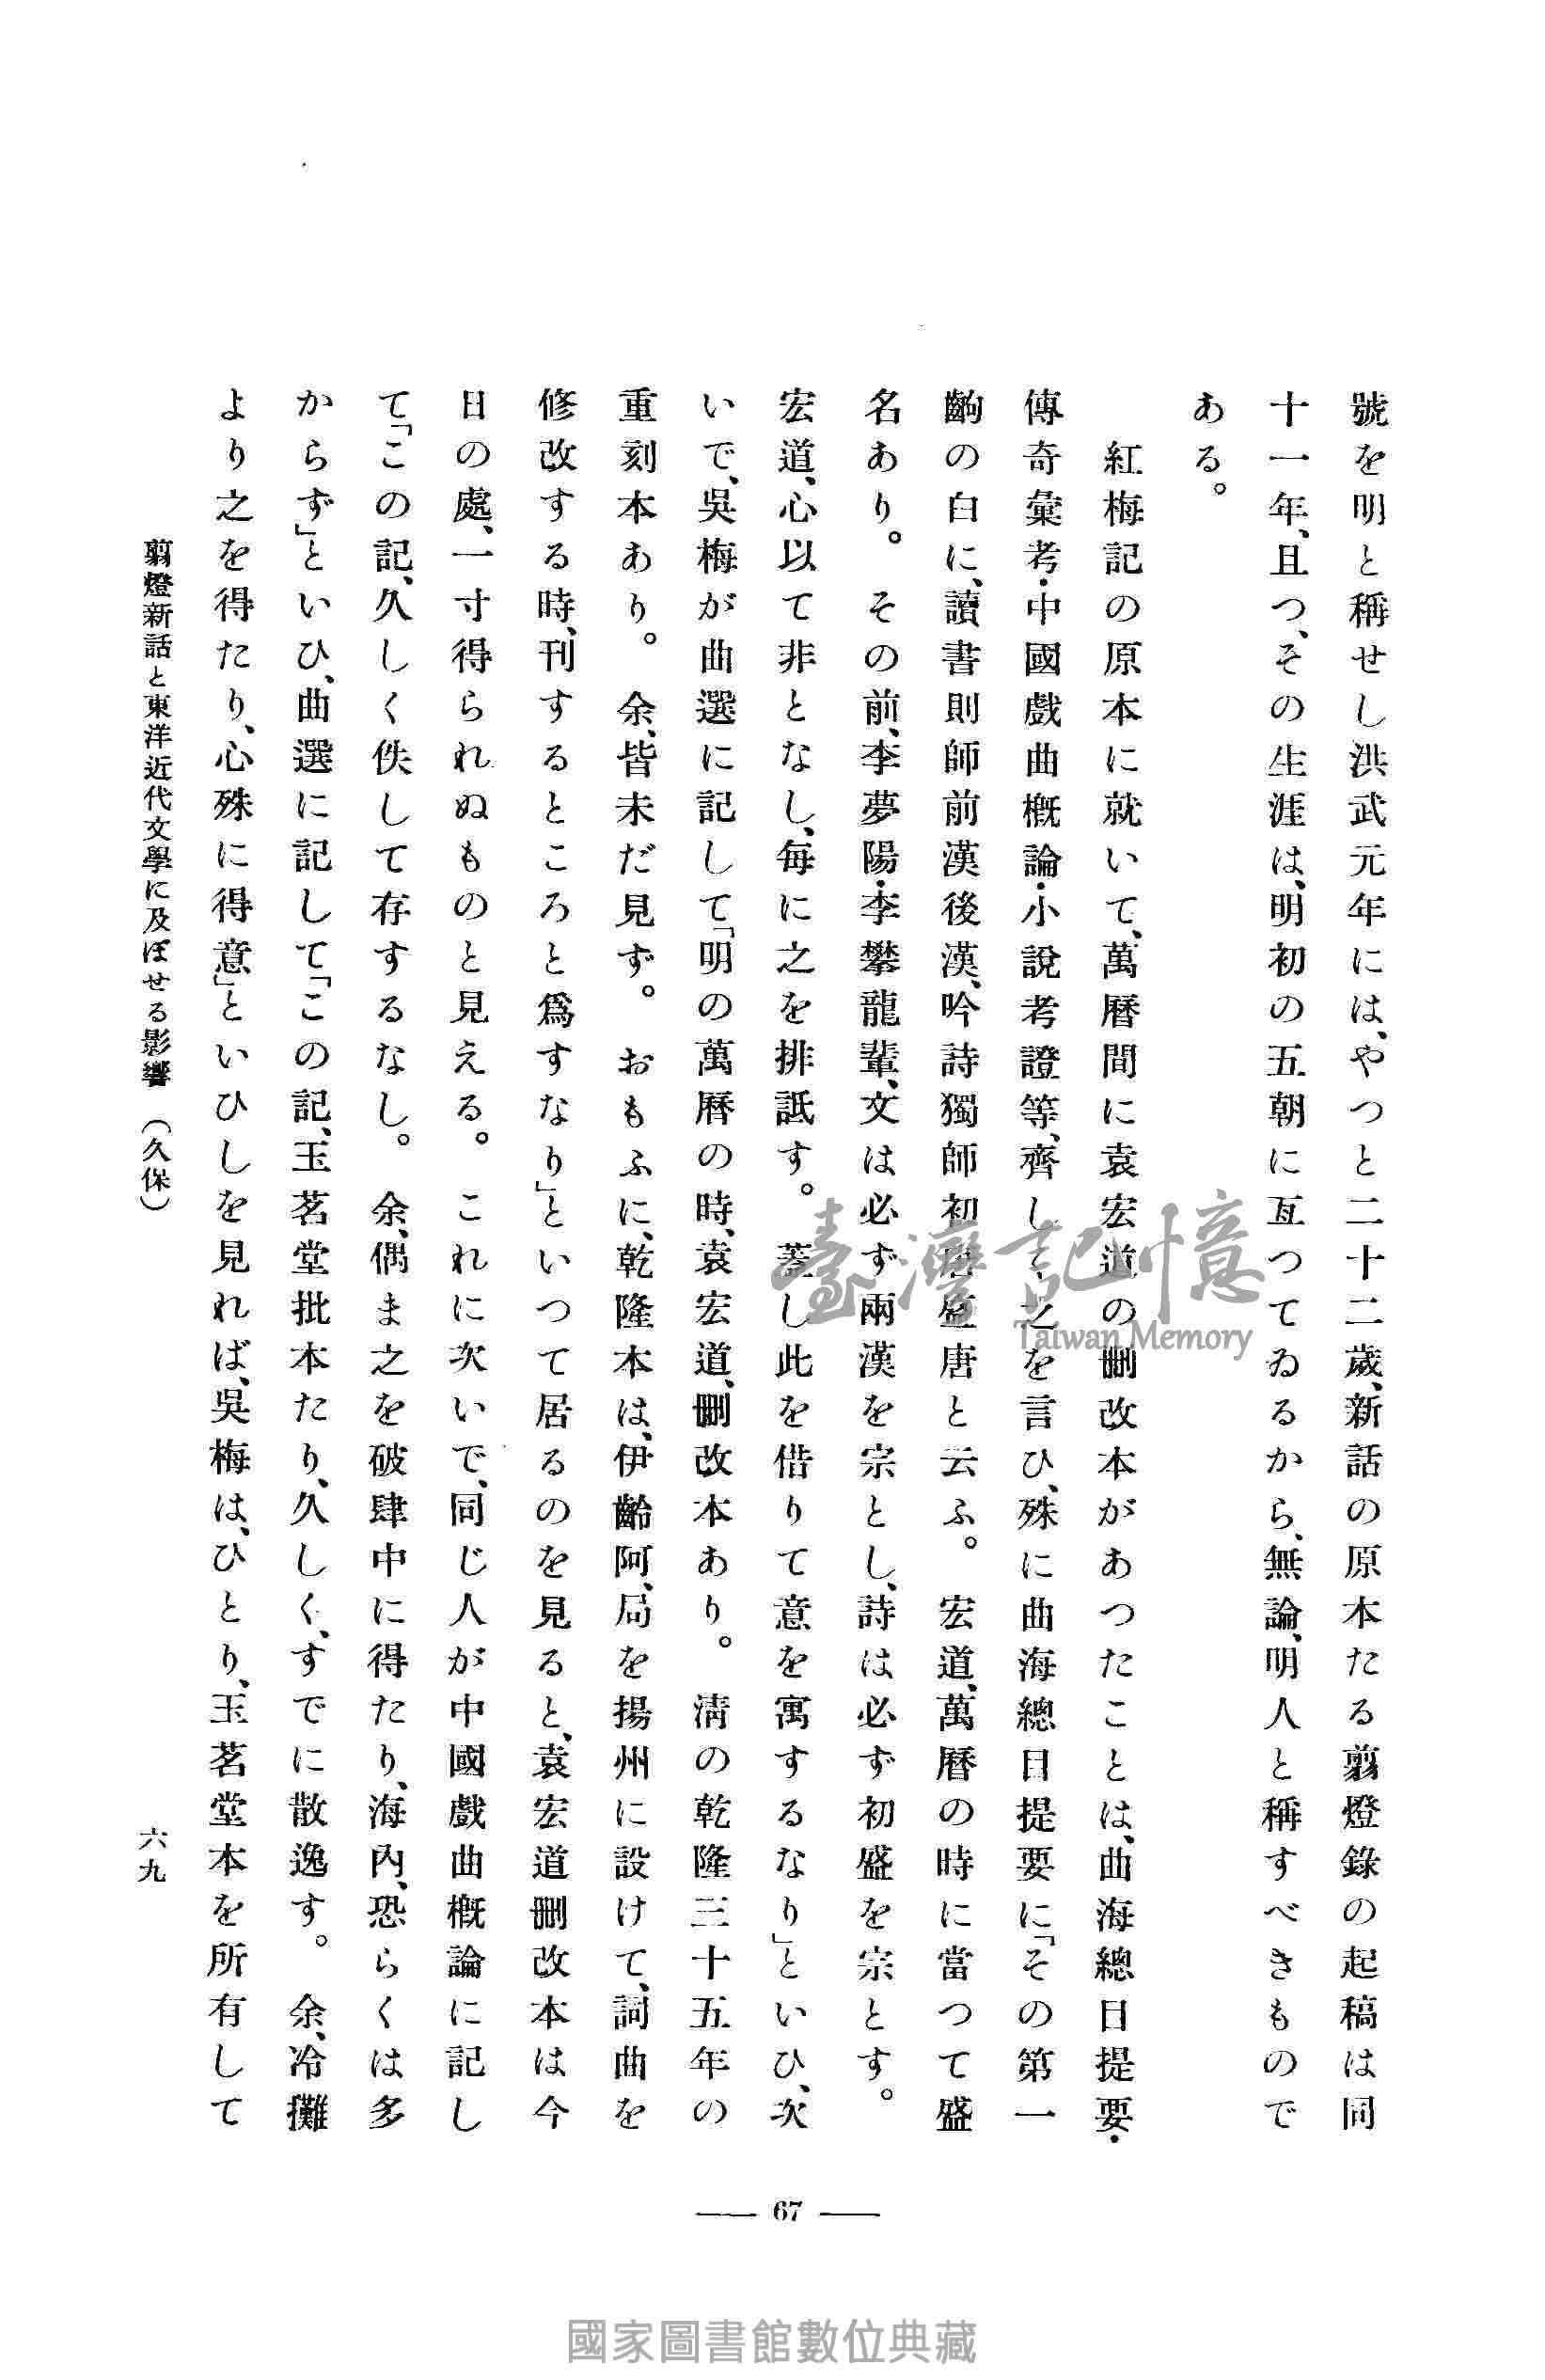 號を明と稱せし洪武元年には、やつと二十二歲、新話の原本たる剪燈錄の起稿は同
十一年、且つ、その生涯は、明初の五朝に亙つてゐるから、無論、明人と稱すべきもので
ある。
紅梅記の原本に就いて、萬曆間に袁宏道の刪改本があつたことは、曲海總目提要・
傳奇彙考・中國戲曲槪論・小說考證等、齊しく之を言ひ、殊に曲海總目提要に「その第一
齣の白に、讀書則師前漢後漢、吟詩獨師初唐盛唐と云ふ。宏道、萬曆の時に當つて盛
名あり。その前、李夢陽・李攀龍輩、文は必ず兩漢を宗とし、詩は必ず初盛を宗とす。
宏道、心以て非となし、每に之を排詆す。蓋し此を借りて意を寓するなり」といひ、次
いで、吳梅が曲選に記して「明の萬曆の時、袁宏道、刪改本あり。淸の乾隆三十五年の
重刻本あり。余、皆未だ見ず。おもふに、乾隆本は、伊齡阿、局を揚州に設けて、詞曲を
修改する時、刊するところと爲すなり」といつて居るのを見ると、袁宏道刪改本は今
日の處、一寸得られぬものと見える。これに次いで、同じ人が中國戲曲槪論に記し
て「この記、久しく佚して存するなし。余、偶ま之を破肆中に得たり、海內、恐らくは多
からず」といひ、曲選に記して「この記、玉茗堂批本たり、久しく、すでに散逸す。余、冷攤
より之を得たり、心殊に得意」といひしを見れば、吳梅は、ひとり、玉茗堂本を所有して
剪燈新話と東洋近代文學に及ぼせる影響（久保）
六九
— 67 —
臺灣記憶
Taiwan Memory
國家圖書館數位典藏